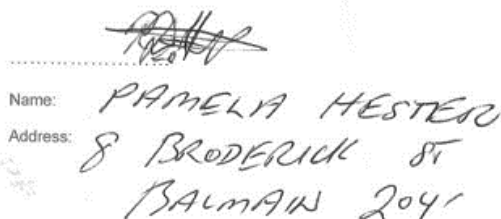 Name: PAMELA HESTER
Address: 8 BRODERICK ST
BALMAIN 2041